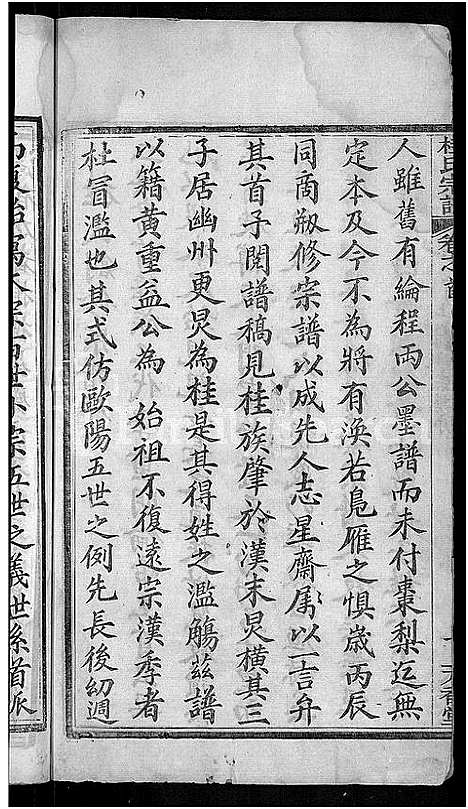 桂氏宗譜 卷之首
人雖舊有綸程兩公墨譜而未付棗梨迄無
定本及今不為將有渙若鳧雁之惧歲丙辰
同商剏修宗譜以成先人志星齋属以一言弁
其首予閱譜稿見桂族肇於漢末炅橫其三
子居幽州更炅為桂是其得姓之濫觴茲譜
以籍黃重益公為 始祖不復遠宗漢季者
杜冒濫也其式仿歐陽五世之例先長後幼週
宗百世小宗五世之義世系首派